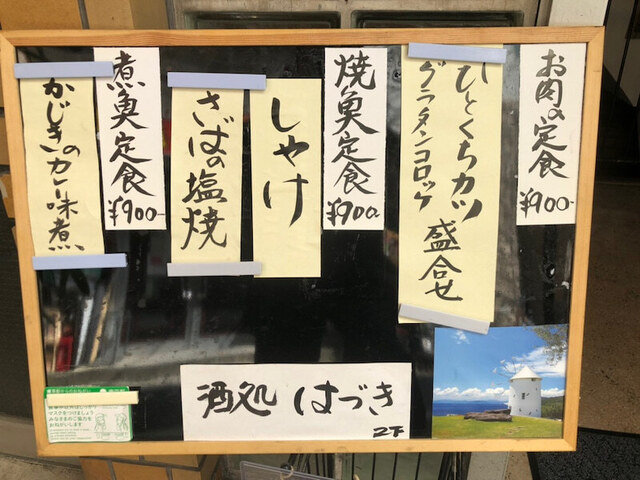 お肉の定食
¥900-
ひとくちカツ
グラタンコロッケ
盛合せ
焼魚定食
¥900-
しゃけ
さばの塩焼
煮魚定食
¥900-
かじきのカレー味煮
酒処 はづき
2F